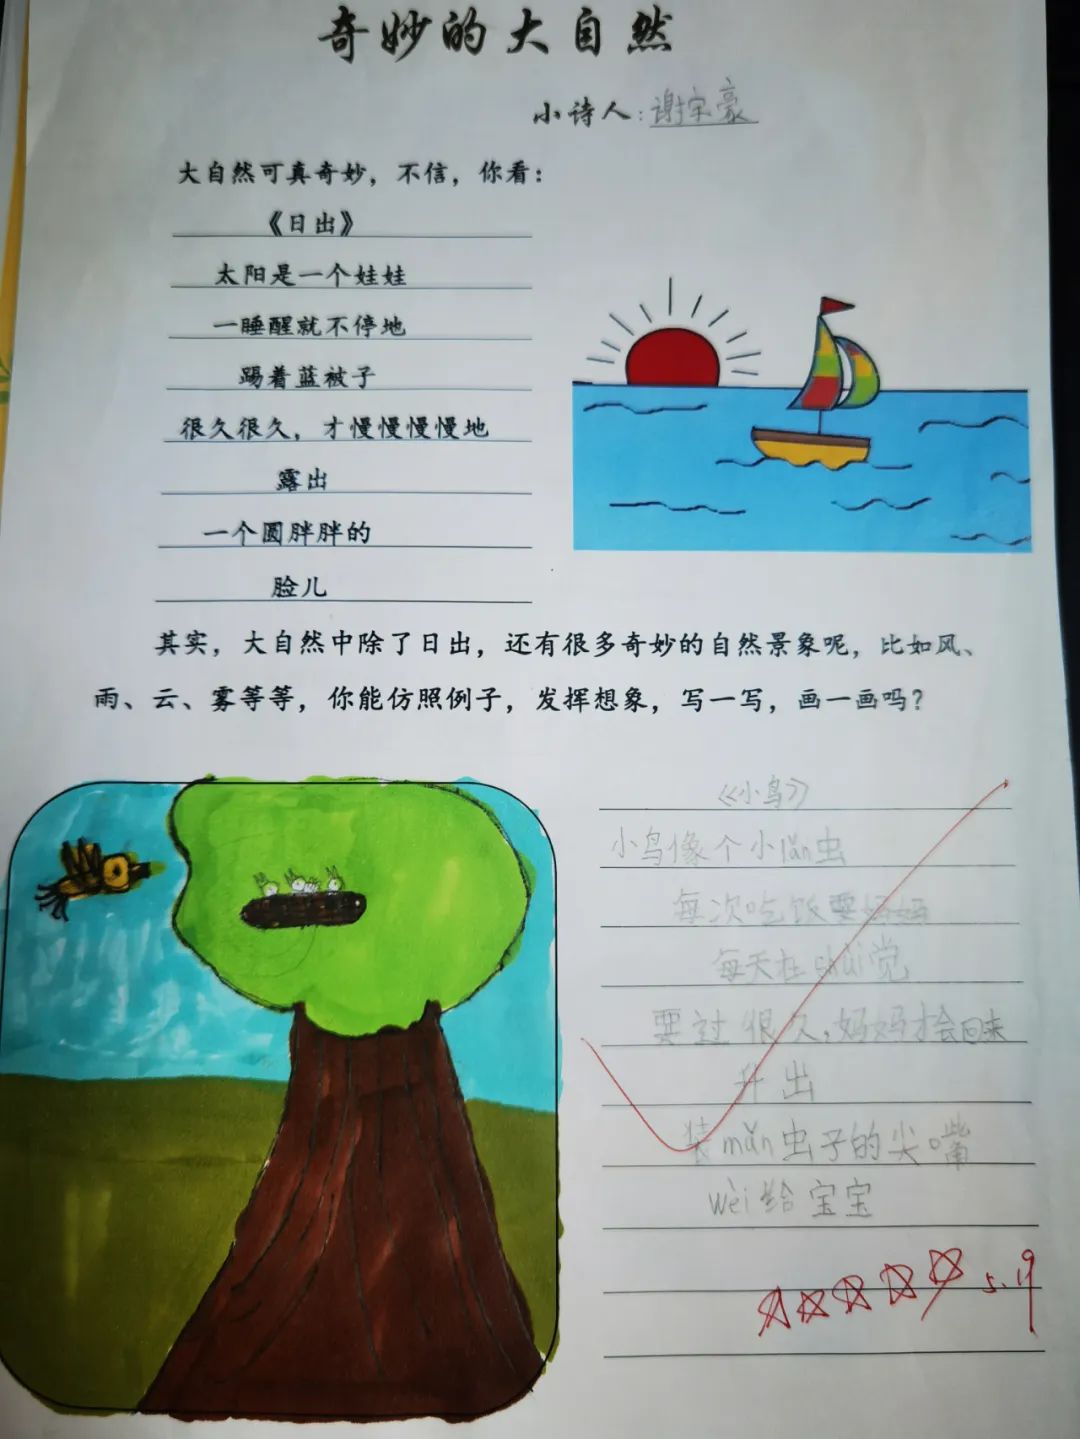 奇妙的大自然
小诗人：谢宗豪
大自然可真奇妙，不信，你看：
《日出》
太阳是一个娃娃
一睡醒就不停地
踢着蓝被子
很久很久，才慢慢慢慢地
露出
一个圆胖胖的
脸儿
其实，大自然中除了日出，还有很多奇妙的自然景象呢，比如风、
雨、云、雾等等，你能仿照例子，发挥想象，写一写，画一画吗？
《小鸟》
小鸟像个小lǎn虫
每次吃饭要妈妈
每天在shuì觉
要过很久，妈妈才会回来
升出
装mǎn虫子的尖嘴
wèi给宝宝
5.19